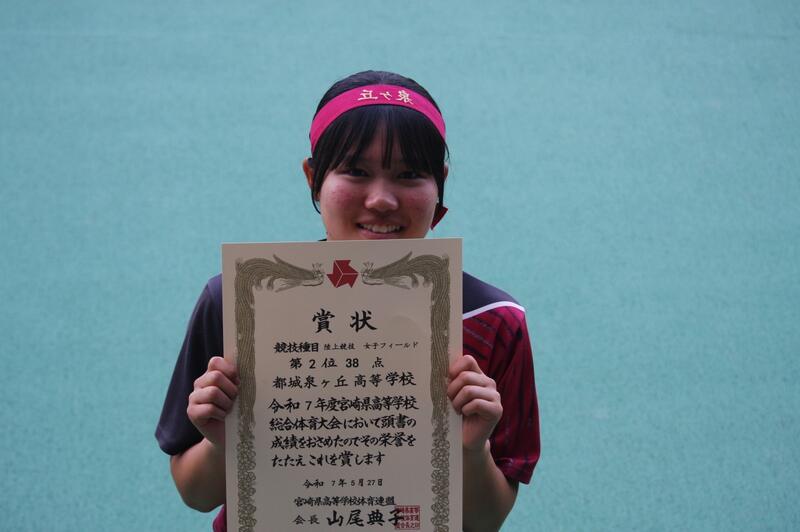 泉ヶ丘
賞状
競技種目 陸上競技 女子フィールド
第2位38点
都城泉ヶ丘高等学校
令和7年度宮崎県高等学校
総合体育大会において頭書の
成績をおさめたのでその栄誉を
たたえこれを賞します
令和 7年5月27日
宮崎県高等学校体育連盟
会長 山尾典子